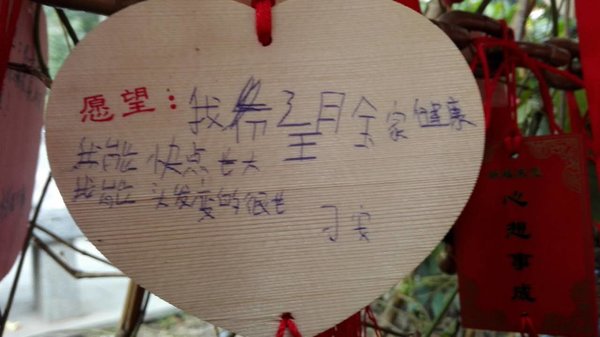 愿望：我希望全家健康
我能快点长大
我能头发变的很长
心想事成